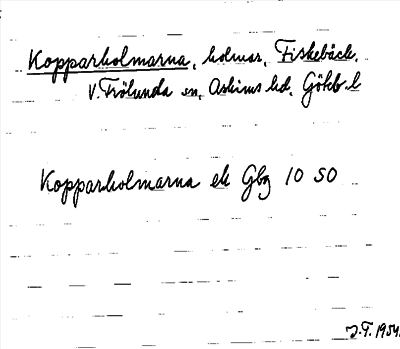 Kopparholmarna, holmar, Fiskebäck,
V. Frölunda sn, Askims hd, Göteb. l
Kopparholmarna ek Gbg 10 SO
J.F. 1954.